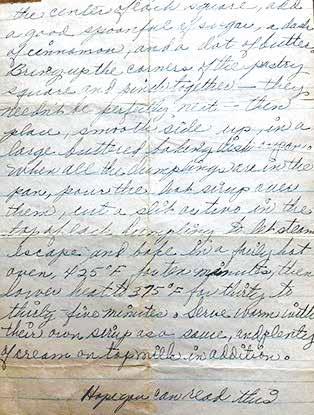 the center of each square, add
a good spoonful of sugar, a dash
of cinnamon, and a dot of butter.
Bring up the corners of the pastry
square and pinch together — they
needn't be perfectly neat — then
place, smooth side up, in a
large buttered baking dish
When all the dumplings are in the
pan, pour the hot sirup over
them, cut a slit or two in the
top of each dumpling to let steam
escape and bake in a fairly hot
oven, 425°F, for ten minutes, then
lower heat to 375°F for thirty to
thirty five minutes. Serve warm with
their own sirup as a sauce, and plenty
of cream or top milk in addition.
Hope you can read this